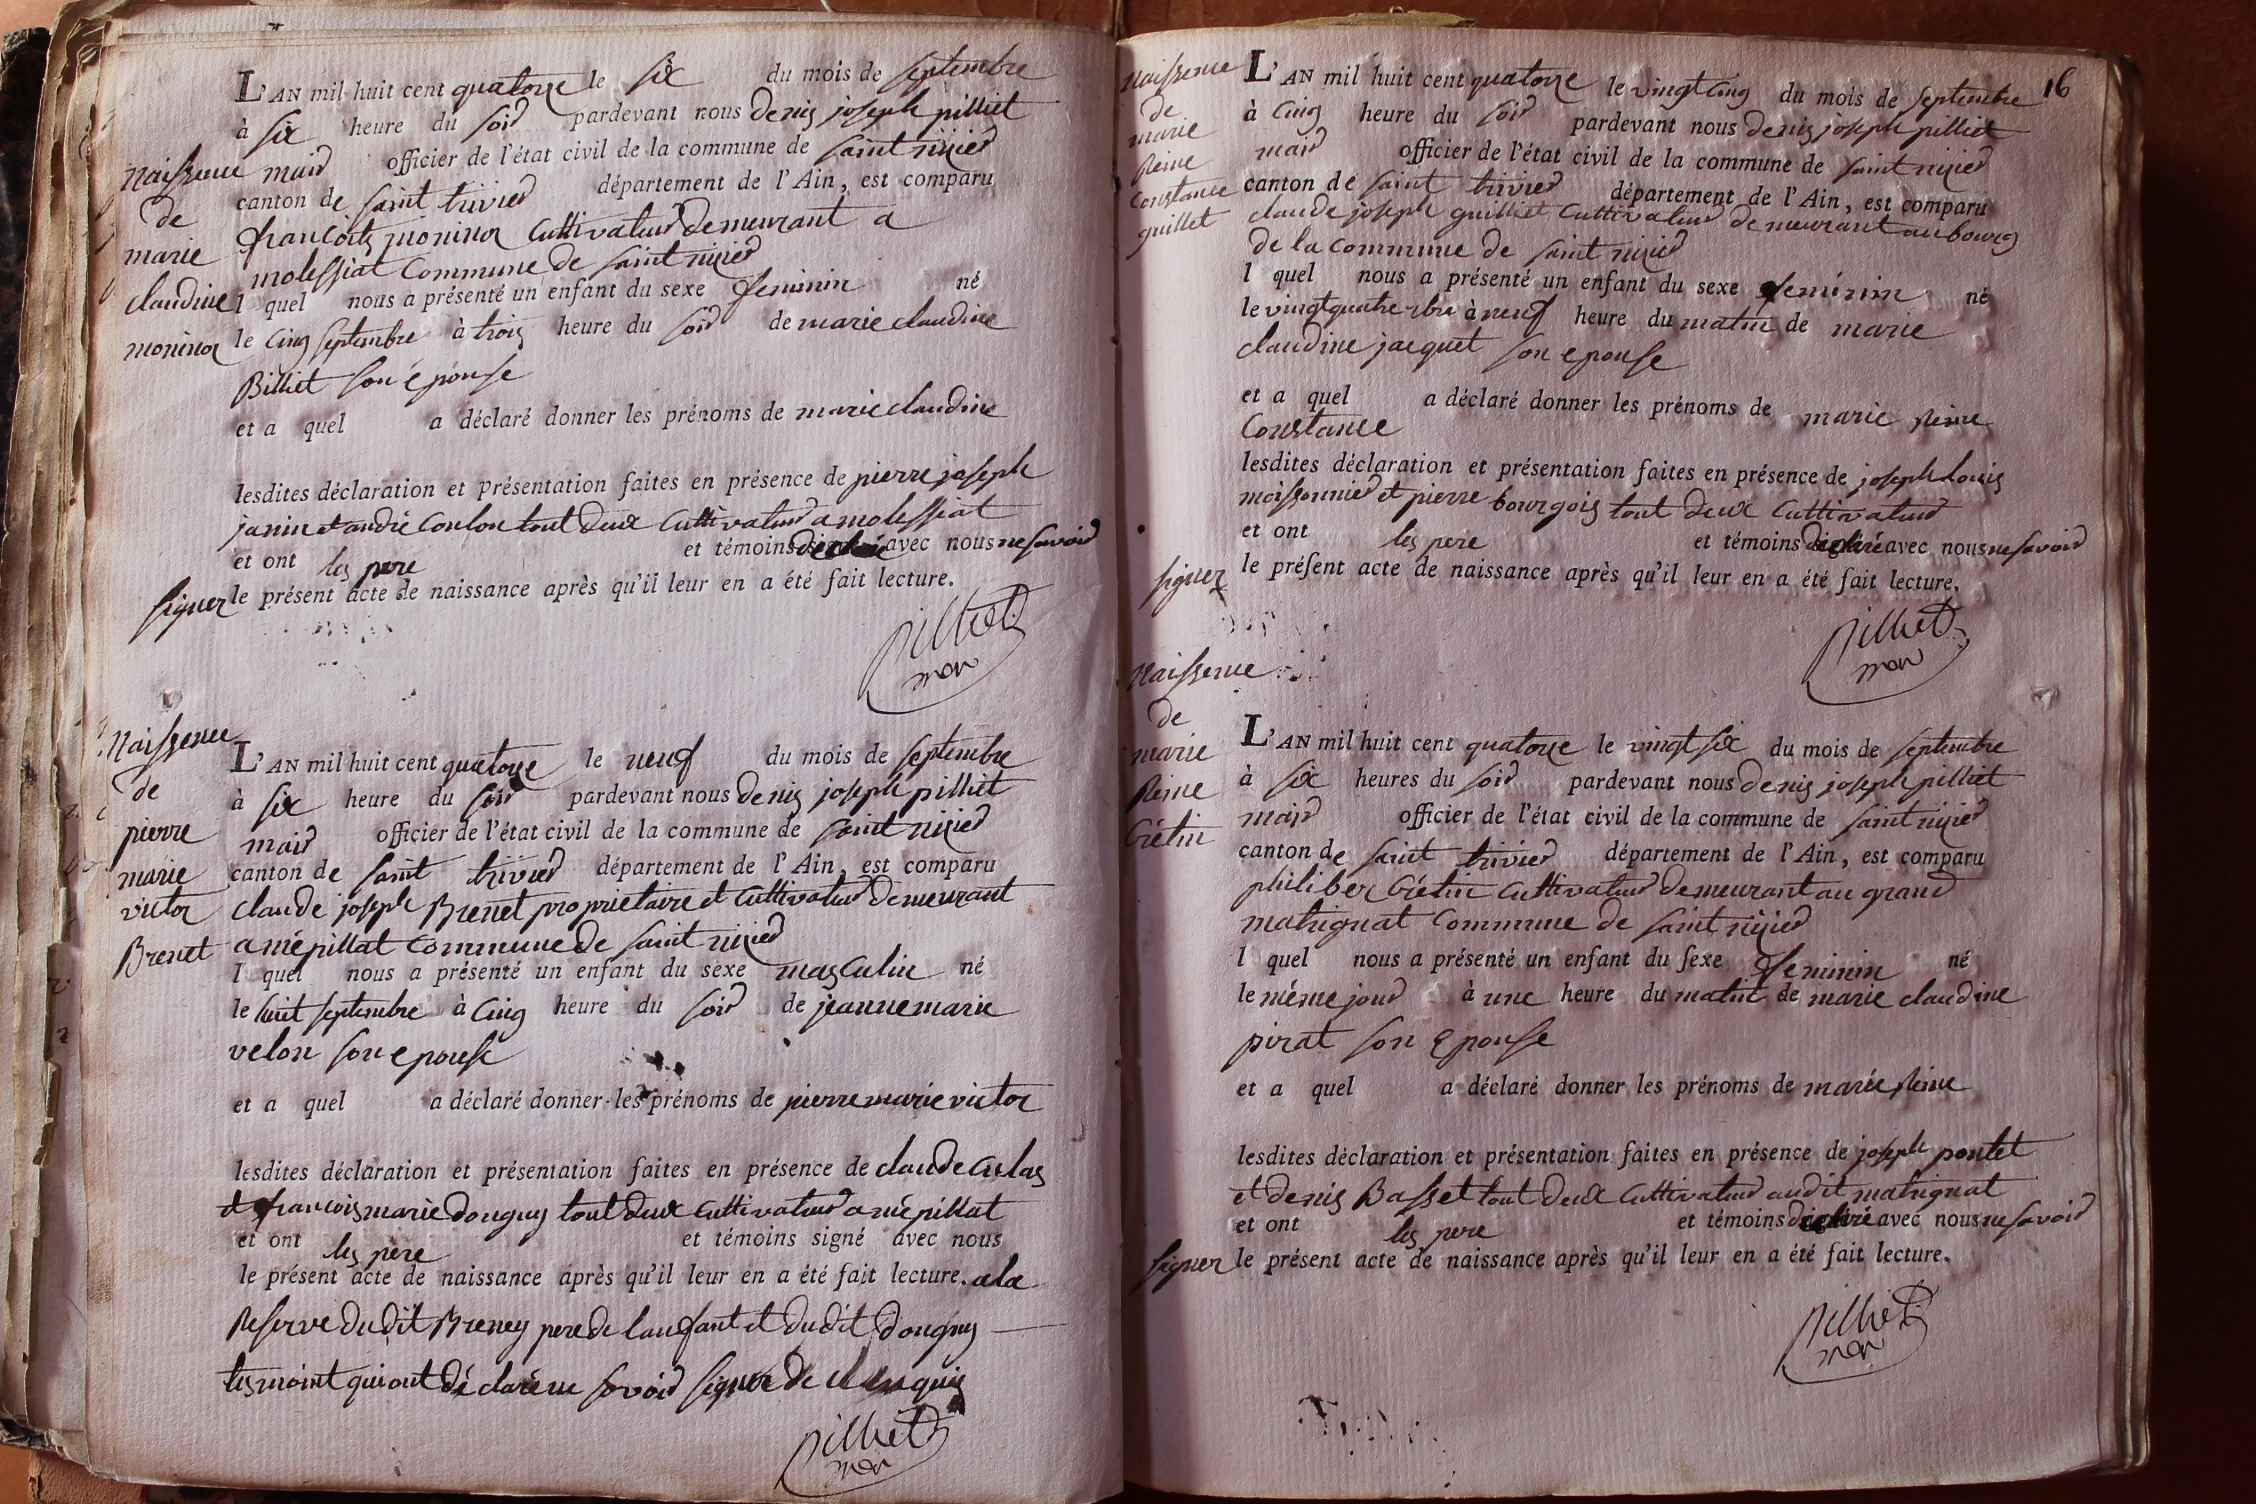 Naissence
de
marie
claudine
moninot
L'AN mil huit cent quatorze le six du mois de septembre
à six heure du soir pardevant nous denis joseph pilliet
mair officier de l'état civil de la commune de saint nizier
canton de saint trivier département de l'Ain, est comparu
francois moninot cultivateur demeurant a
molissiat commune de saint nizier
l quel nous a présenté un enfant du sexe feminin né
le cinq septembre à trois heure du soir de marie claudine
Billiet son épouse
et a quel a déclaré donner les prénoms de marie claudine
lesdites déclaration et présentation faites en présence de pierre joseph
janin et andré coulon tout deux cultivateur a molissiat
et ont les pere et témoins déclaré avec nous ne savoir
signer le présent acte de naissance après qu'il leur en a été fait lecture.
pilliet
mair
Naissence
de
pierre
marie
victor
Brenet
L'AN mil huit cent quatorze le neuf du mois de septembre
à six heure du soir pardevant nous denis joseph pilliet
mair officier de l'état civil de la commune de saint nizier
canton de saint trivier département de l'Ain, est comparu
claude joseph Brenet proprietaire et cultivateur demeurant
a mépillat commune de saint nizier
l quel nous a présenté un enfant du sexe masculin né
le huit septembre à cinq heure du soir de jeanne marie
velon son epouse
et a quel a déclaré donner les prénoms de pierre marie victor
lesdites déclaration et présentation faites en présence de claude
et francois marie donguy tout deux cultivateur a mépillat
et ont les pere et témoins signé avec nous
le présent acte de naissance après qu'il leur en a été fait lecture. a la
Reserve dudit Breney pere de lenfant et dudit donguy
tesmoint qui ont déclaré ne savoir signer de
pilliet
mair
16
Naissence
de
marie
Reine
Constance
guillet
L'AN mil huit cent quatorze le vingt cinq du mois de septembre
à cinq heure du soir pardevant nous denis joseph pilliet
mair officier de l'état civil de la commune de saint nizier
canton de saint trivier département de l'Ain, est comparu
claude joseph guilliet cultivateur demeurant au bourg
de la commune de saint nizier
l quel nous a présenté un enfant du sexe feminin né
le vingt quatre 7bre à neuf heure du matin de marie
claudine jacquet son epouse
et a quel a déclaré donner les prénoms de marie Reine
Constance
lesdites déclaration et présentation faites en présence de joseph louis
moissonnier et pierre bourgois tout deux cultivateur
et ont les pere et témoins déclaré avec nous ne savoir
signer le présent acte de naissance après qu'il leur en a été fait lecture.
pilliet
mair
Naissence
de
marie
Reine
Crétin
L'AN mil huit cent quatorze le vingt six du mois de septembre
à six heures du soir pardevant nous denis joseph pilliet
mair officier de l'état civil de la commune de saint nizier
canton de saint trivier département de l'Ain, est comparu
philiber Crétin cultivateur demeurant au grand
matignat commune de saint nizier
l quel nous a présenté un enfant du sexe feminin né
le même jour à une heure du matin de marie claudine
pirat son Epouse
et a quel a déclaré donner les prénoms de marie Reine
lesdites déclaration et présentation faites en présence de joseph pontet
et denis Basset tout deux cultivateur audit matignat
et ont les pere et témoins déclaré avec nous ne savoir
signer le présent acte de naissance après qu'il leur en a été fait lecture.
pilliet
mair